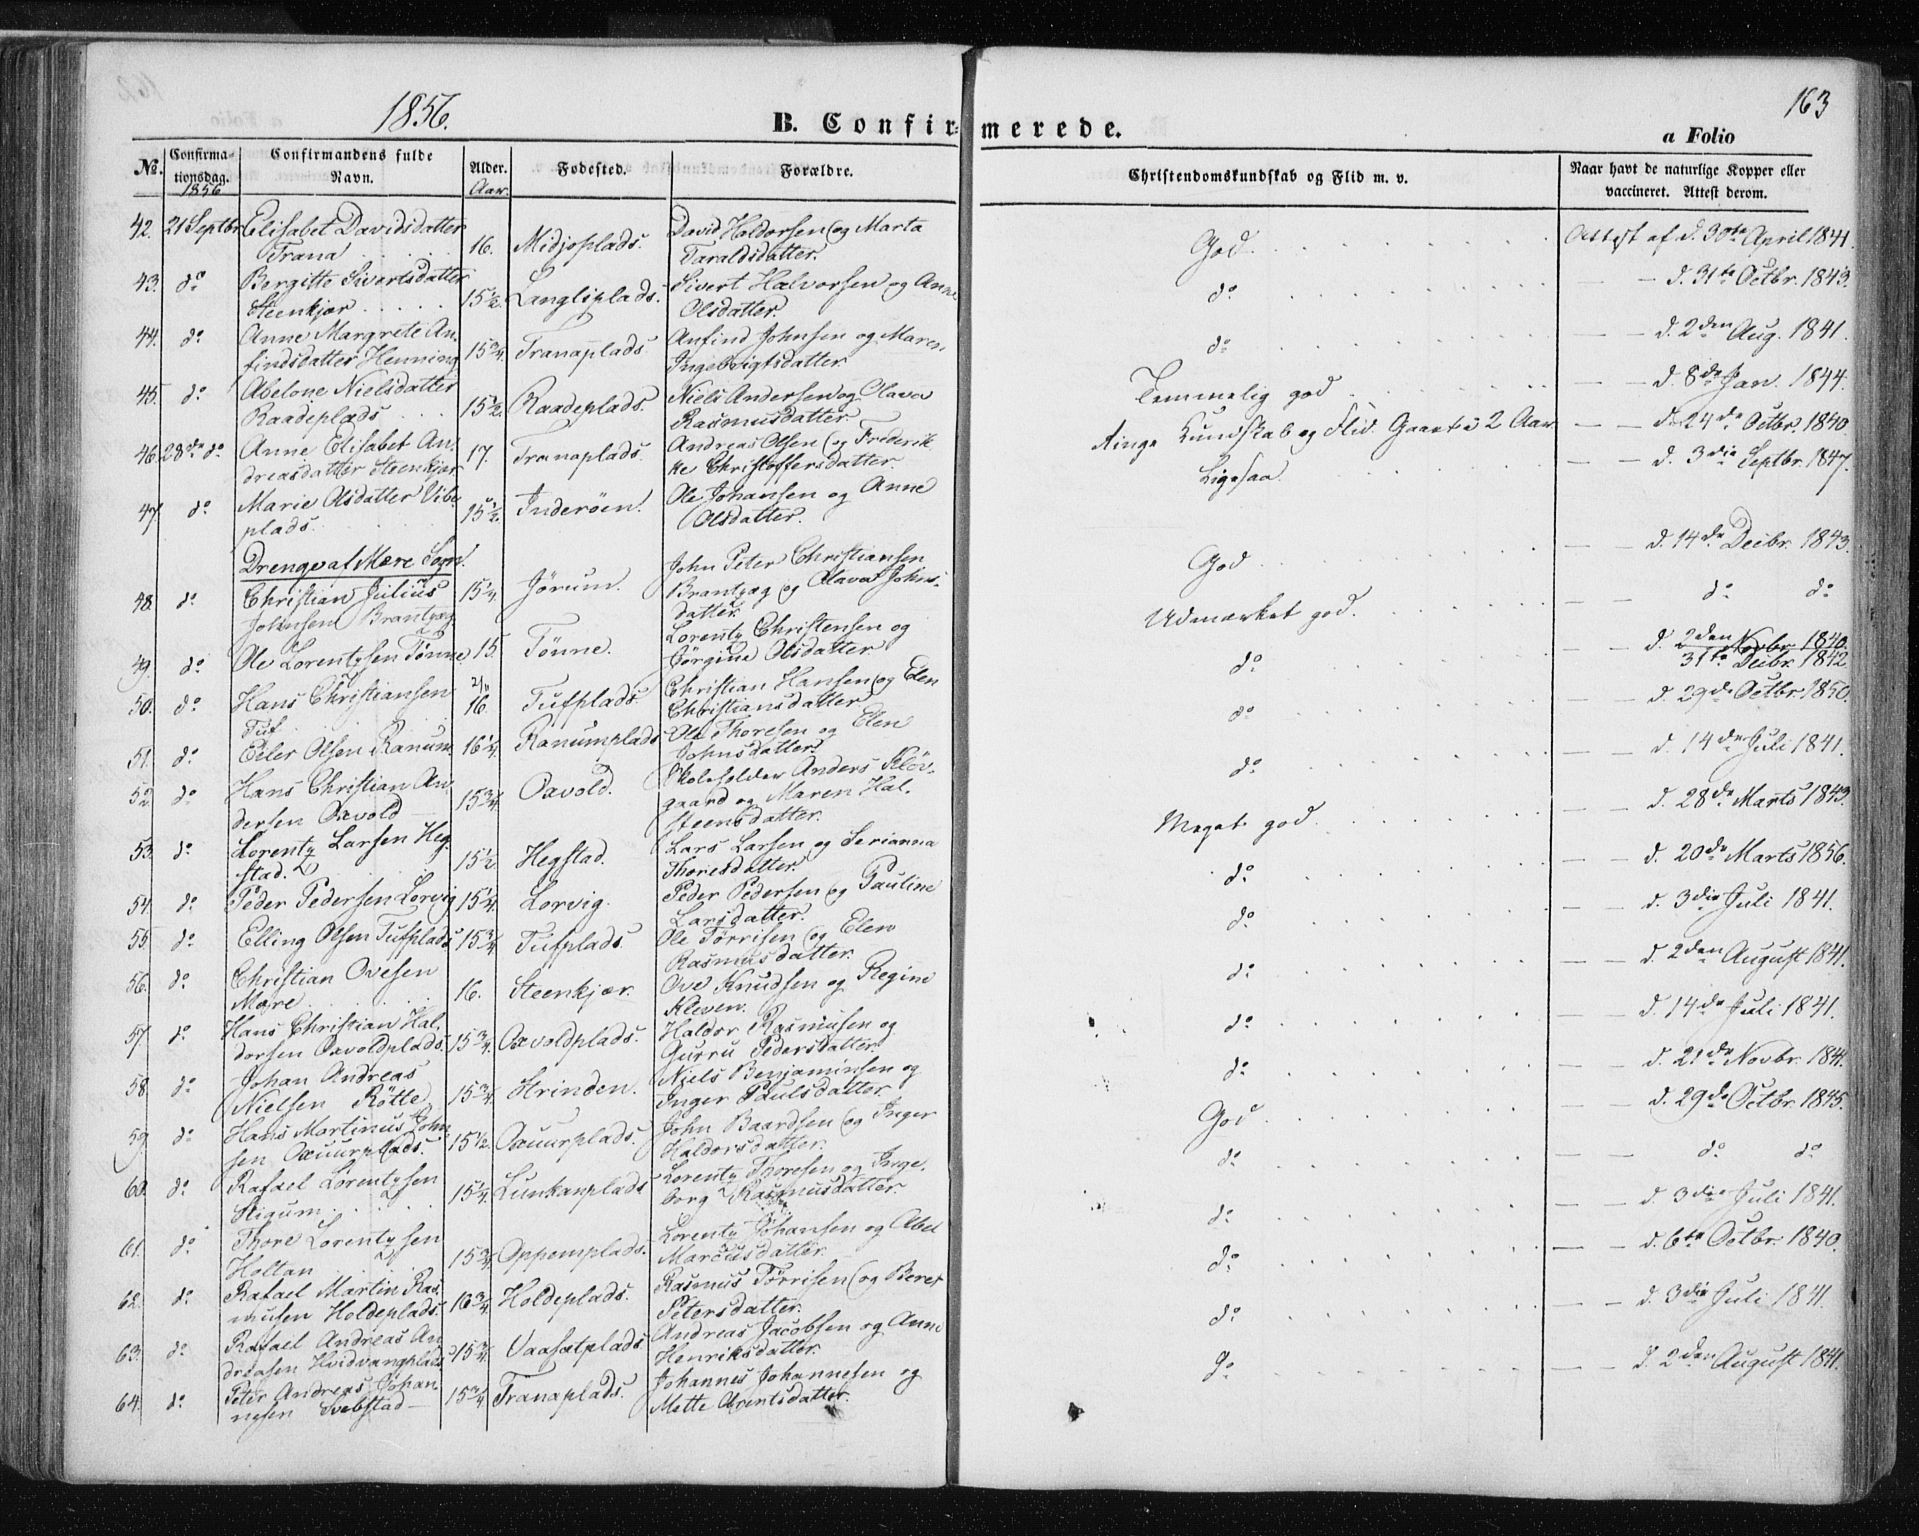 1856.
B. Confirmerede.
163
a Folio
No.
Confirmationsdag.
1856
Confirmandens fulde Navn.
Alder.
Aar.
Fødested.
Forældre.
Christendomskundskab og Flid m. v.
Naar havt de naturlige Kopper eller vaccineret. Attest derom.
42. 21 Septbr Elisabet Davidsdatter Trana 16. Midjoplads. David Haldorsen og Marta Taraldsdatter. God. Attest af d. 30te April 1841.
43. do Bergitte Sivertsdatter Steenkjær 15 1/2. Langliplads. Sivert Halvorsen og Anne Olsdatter. do — d. 31te Octbr. 1843.
44. do Anne Margrete Anfindsdatter Henning 15 3/4. Tranaplads. Anfind Johnsen og Maren Ingebrigtsdatter. do — — d. 2den Aug. 1841.
45. do Abelone Nielsdatter Raadeplads 15 1/2. Raadeplads. Niels Andersen og Olava Rasmusdatter. Temmelig god — — d. 8de Jan. 1844.
46. 28de do Anne Elisabet Andreasdatter Steenkjær 17. Tranaplads. Andreas Olsen og Frederikke Christoffersdatter. Ringe Kundskab og Flid. Gaaet i 2 Aar — — d. 24de Octbr. 1840.
47. do Marie Olsdatter Vibeplads. 15 1/2. Inderøen. Ole Johansen og Anne Olsdatter. Ligesaa — — d. 3die Septbr. 1847.
Drenge af Mære Sogn.
48. do Christian Julius Johnsen Brantzæg 15 1/4. Jørum. John Peter Christiansen Brantzæg og Olava Johnsdatter. God — — d. 14de Decbr. 1843.
49. do Ole Lorentzsen Tønne 15. Tønne. Lorentz Christensen og Jørgine Olsdatter Udmærket god. do do
50. do Hans Christiansen Tuf 16. Tufplads. Christian Hansen og Elen Christiansdatter do — — d. 2den Novbr. 1840. 31te Decbr. 1842.
51. do Eiler Olsen Ranum. 16 1/4. Ranumplads Ole Thoresen og Elen Johnsdatter. do — — d. 29de Octbr. 1850.
52. do Hans Christian Andersen Oxvold 15 3/4. Oxvold. Skoleholder Anders Kløvgaard og Maren Halsteensdatter. do — — d. 14de Juli 1841.
53. do Lorentz Larsen Hegstad. 15 1/2 Hegstad. Lars Larsen og Serianna Thoresdatter. Meget god — — d. 28de Marts 1843.
54. do Peder Pedersen Lorvig 15 1/4. Lorvig. Peder Pedersen og Pauline Larsdatter. do — — d. 20de Marts 1856.
55. do Elling Olsen Tufplads 15 3/4. Tufplads. Ole Tørrisen og Elen Rasmusdatter. do — — d. 3die Juli 1841.
56. do Christian Ovesen Mære 16. Steenkjær. Ove Knudsen og Regine Kleven. do — — d. 2den August 1841.
57. do Hans Christian Haldorsen Oxvoldplads. 15 3/4. Oxvoldplads. Haldor Rasmusen og Gurru Pedersdatter. do — — d. 14de Juli 1841.
58. do Johan Andreas Nielsen Røtte 15 3/4. Strinden. Niels Benjaminsen og Inger Paulsdatter. do — — d. 21de Novbr. 1841.
59. do Hans Martinus Johnsen Oxuurplads. 15 1/2. Oxuurplads. John Baardsen og Inger Haldorsdatter. God — — d. 29de Octbr. 1845.
60. do Rafael Lorentzsen Stigum 15 1/4. Lunkanplads. Lorentz Thoresen og Ingeborg Rasmusdatter. do — — do do
61. do Thore Lorentzsen Holtan 15 3/4. Oppemplads. Lorentz Johansen og Abel Marcusdatter. do — — d. 3die Juli 1841.
62. do Rafael Martin Rasmusen Holdeplads. 16 3/4. Holdeplads. Rasmus Tørrisen og Beret Petersdatter. do — — d. 6te Octbr. 1840.
63. do Rafael Andreas Andreasen Hvidvangplads 15 3/4. Vaasætplads. Andreas Jacobsen og Anne Henriksdatter. do — — d. 3die Juli 1841.
64. do Peter Andreas Johannesen Svebstad 15 3/4 Tranaplads. Johannes Johannesen og Mette Arentsdatter. do — — d. 2den August 1841.